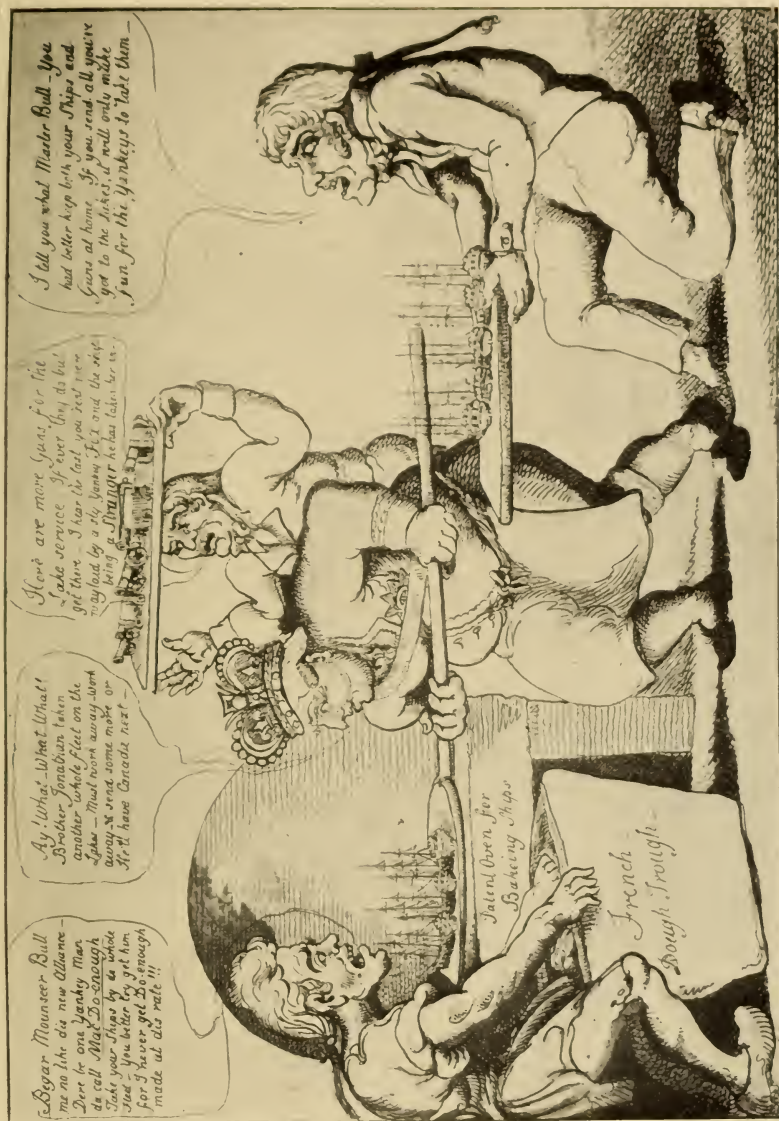 Begar Mounseer Bull
me no like dis new Alliance –
Dere be one Yankey Man
da call Mac Do-enough
Take your Ships by de whole
– You better try get him
for I never get Do-enough
made at dis rate!!!
Ay! What – What What!
Brother Jonathan taken
another whole fleet on the
Lakes – Must work away – Work
away & send some more or
He'll have Canada next –
Here are more Guns for the
Lake service. If ever they do but
get there – I hear the last you sent were
waylaid by a sly Yankey Fox and the
being a Stranger he has taken her in –
I tell you what Master Bull – You
had better keep both your Ships and
Guns at home – If you send all you're
got to the Lakes, it will only make
fun for the Yankeys to take them –
Patent Oven for
Bakeing Ships
French –
Dough Trough –